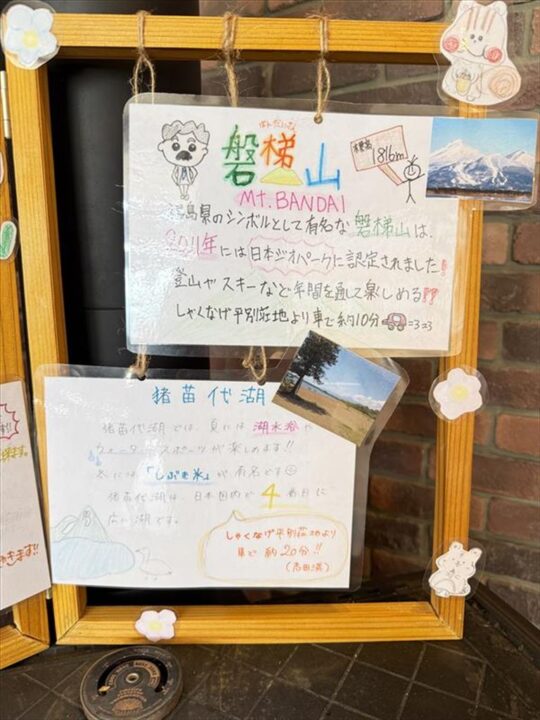 ばんだいさん
磐梯山
標高
1816m
Mt. BANDAI
福島県のシンボルとして有名な磐梯山は、
2011年には日本ジオパークに認定されました!
登山やスキーなど年間を通して楽しめる!!
しゃくなげ平別荘地より車で約10分 =3=3
猪苗代湖
猪苗代湖では、夏には湖水浴や
ウォータースポーツが楽しめます!!
冬には「しぶき氷」が有名です
猪苗代湖は、日本国内で4番目に
広い湖です。
しゃくなげ平別荘地より
車で約20分!!